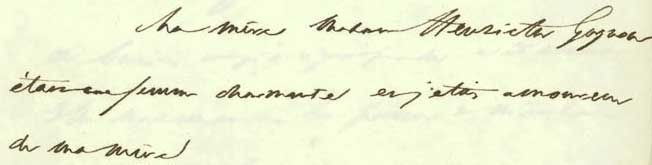 Ma mère Madame Henriette Gagnon
était une femme charmante et j'étais amoureux
de ma mère